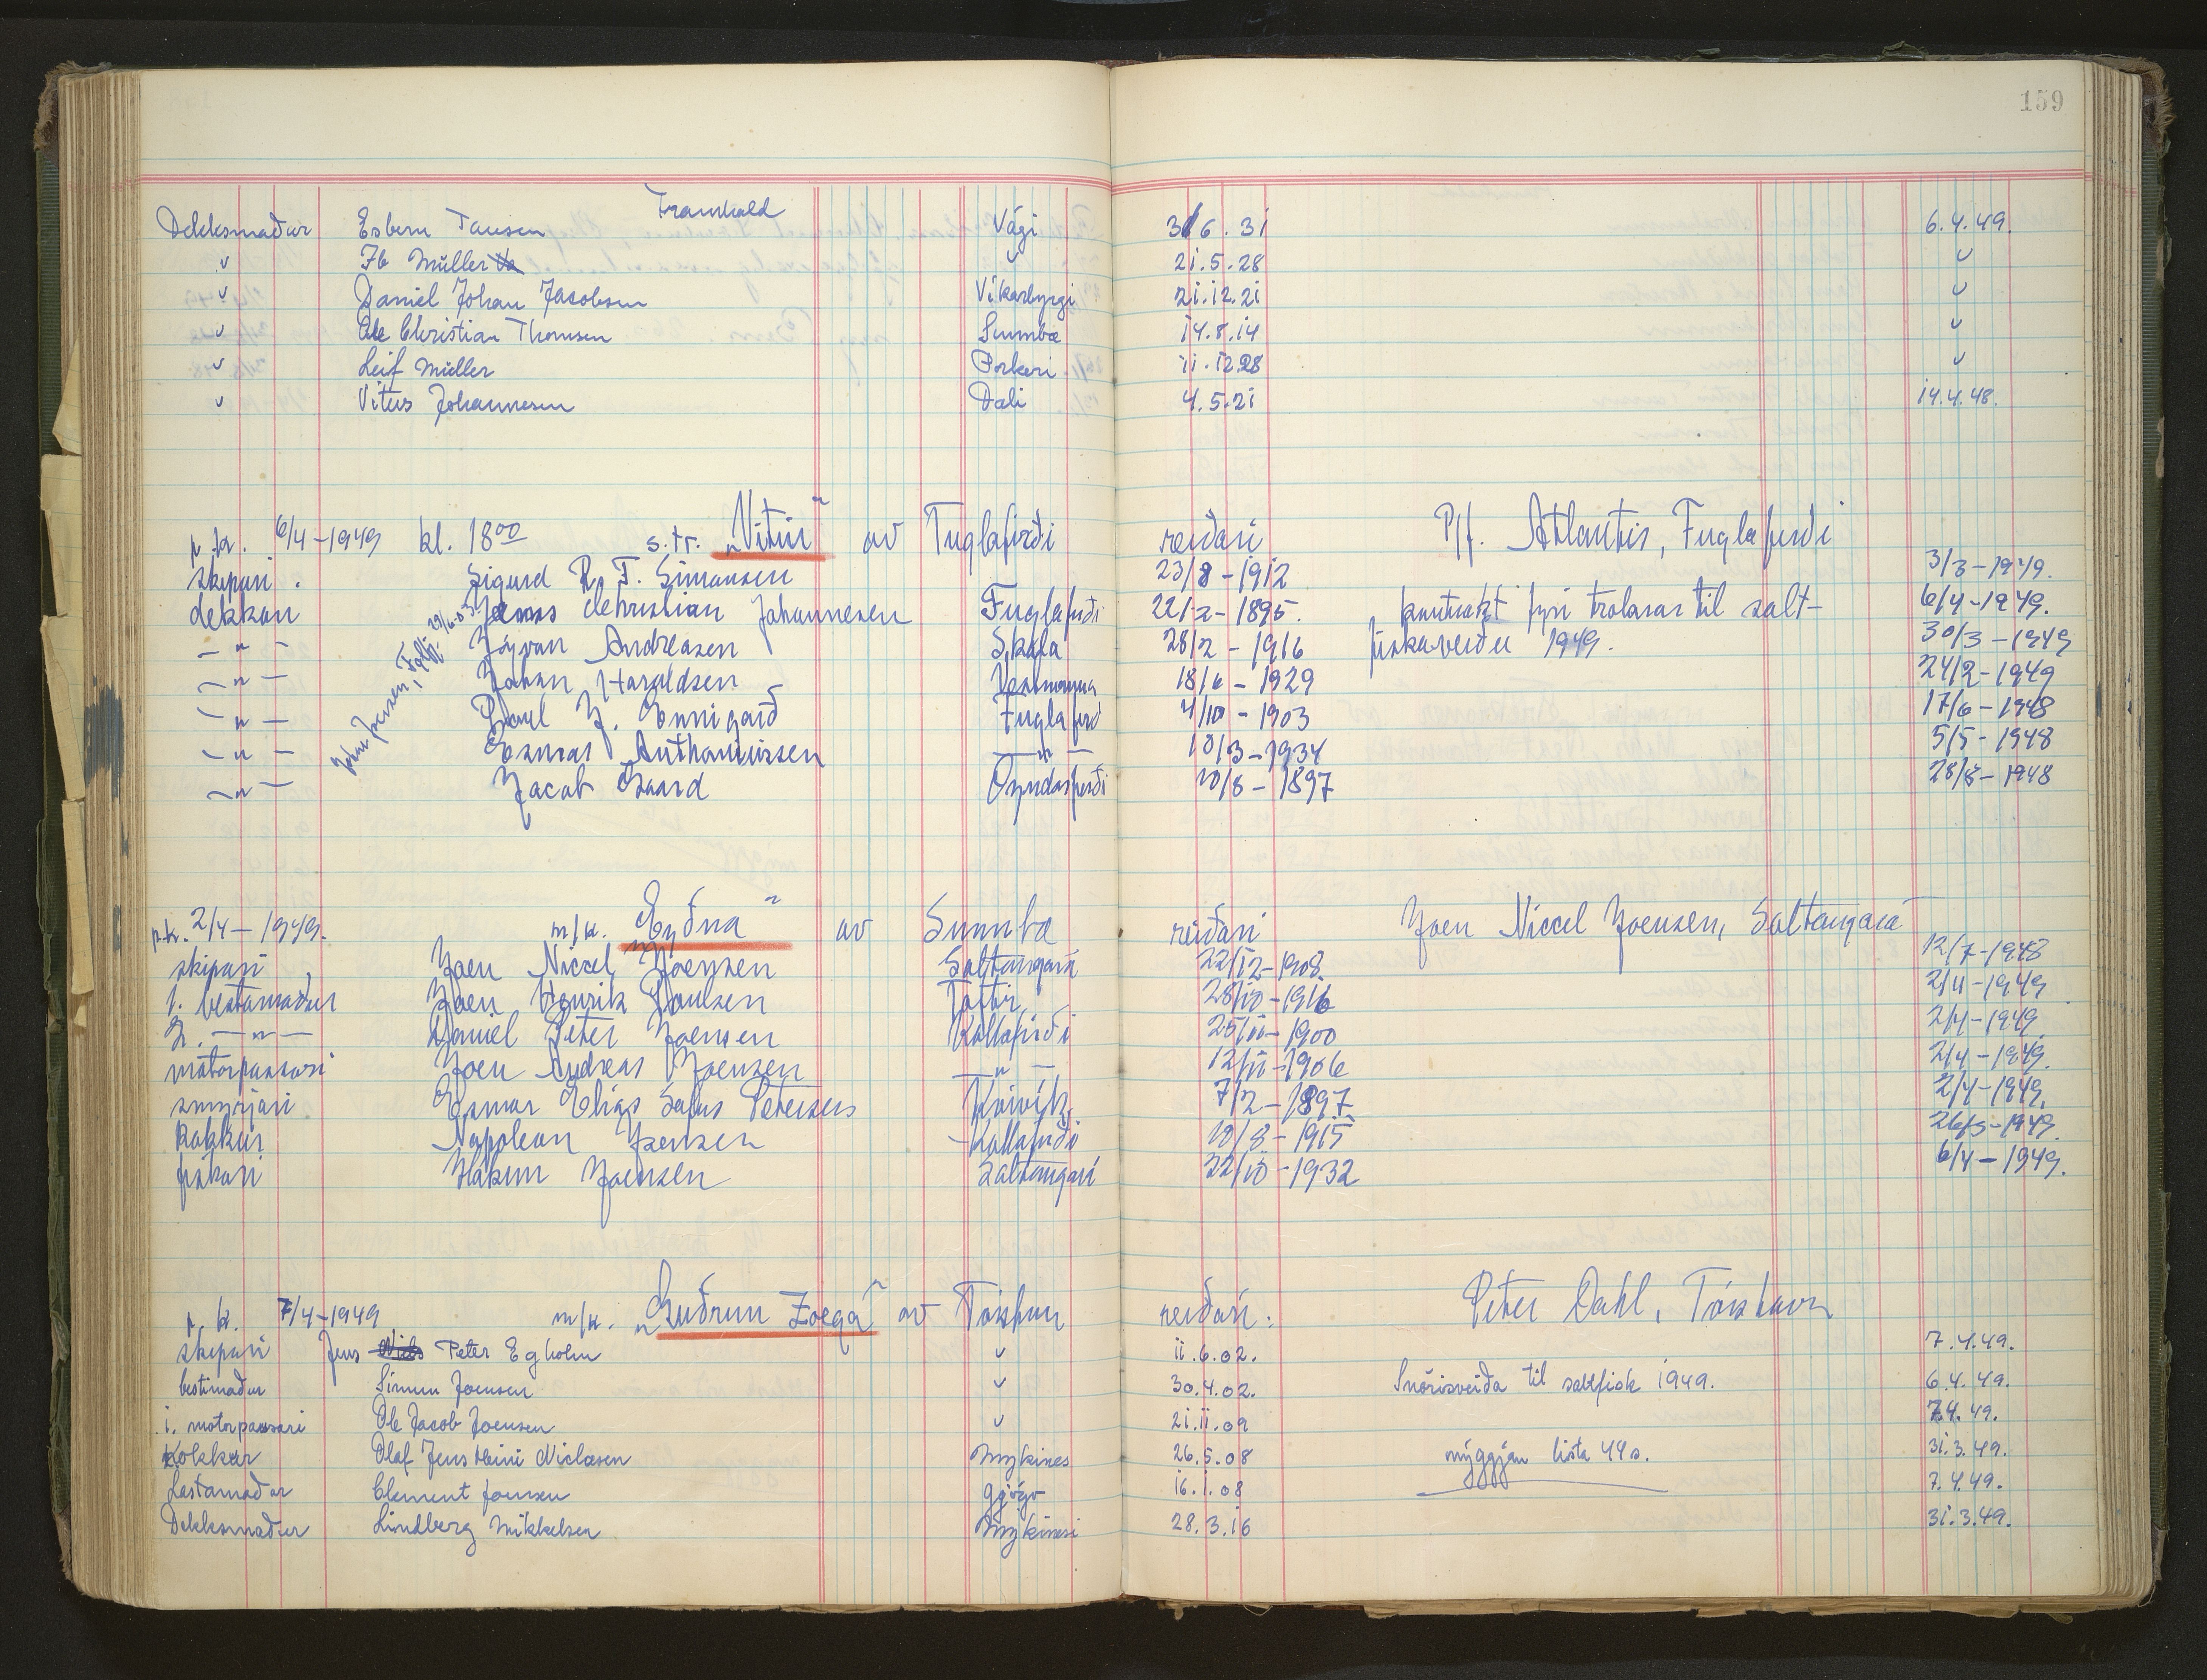 159
Framhald
Dekksmaður Esbern Tausen Vági 3/6.31 6.4.49.
" Ib Müller " 21.5.28 "
" Daniel Johan Jacobsen Víkarbyrgi 21.12.21 "
" Ole Christian Thomsen Sumba 14.8.14 "
" Leif Müller Porkeri 11.12.28 "
" Vitus Johannesen Dali 4.5.21 14.4.48.
p.k. 6/4-1949 kl. 18⁰⁰ s.tr. „Vitin" av Fuglafirði reiðari P/f. Atlantis, Fuglafirði
skipari. Sigurd R. F. Simonsen 23/8-1912 3/3-1949.
dekkan Jenus Christian Johannesen Fuglafirði 22/2-1895. kontrakt fyri trolarar til salt- 6/4-1949.
-"- Jógvan Andreasen Skála 28/2-1916 fiskaveiðu 1949. 30/3-1949
-"- Johan Haraldsen Vestmanna 18/6-1929 24/2-1949
-"- Poul J. Ennigarð Fuglafirð 4/10-1903 17/6-1948
-"- Esmar Anthoniussen -"- 18/3-1934 5/5-1948
-"- Jacob Gaard Oyndarfirði 10/8-1897 28/8-1948
p.k. 2/4-1949. m/k. „Eyðna" av Sumba reiðari Joen Niccel Joensen, Saltangará
skipari, Joen Niccel Joensen Saltangará 22/12-1908. 12/7-1948
1. bestamaður Joen Henrik Poulsen Toftir 28/10-1916 2/4-1949
2. -"- Daniel Peter Joensen Kollafirði 25/11-1900 2/4-1949
motorpassari Joen Andreas Joensen -"- 12/11-1906 2/4-1949.
smyrjari Esmar Elias Sofus Petersen Kvívík 7/2-1897 2/4-1949.
kokkur Napoleon Joensen Kollafirði 10/8-1915 26/3-1949.
fiskari Hákun Joensen Saltangará 22/10-1932 6/4-1949.
p.k. 7/4-1949 m/k. „Guðrun Zoega" av Tórshavn reiðari: Peter Dahl, Tórshavn
skipari Jens Peter Egholm " 11.6.02. 7.4.49.
bestimaður Simun Joensen " 30.4.02. Snørisveiða til saltfisk 1949. 6.4.49.
1. motorpassari Ole Jacob Joensen " 21.11.09 7.4.49.
Kokkur Olaf Jens Heini Niclasen Mykines 26.5.08 nýggjan lista 44s. 31.3.49.
Lastamaður Clement Joensen Gjógv 16.1.08 7.4.49.
Dekksmaður Lindberg Mikkelsen Mykinesi 28.3.16 31.3.49.